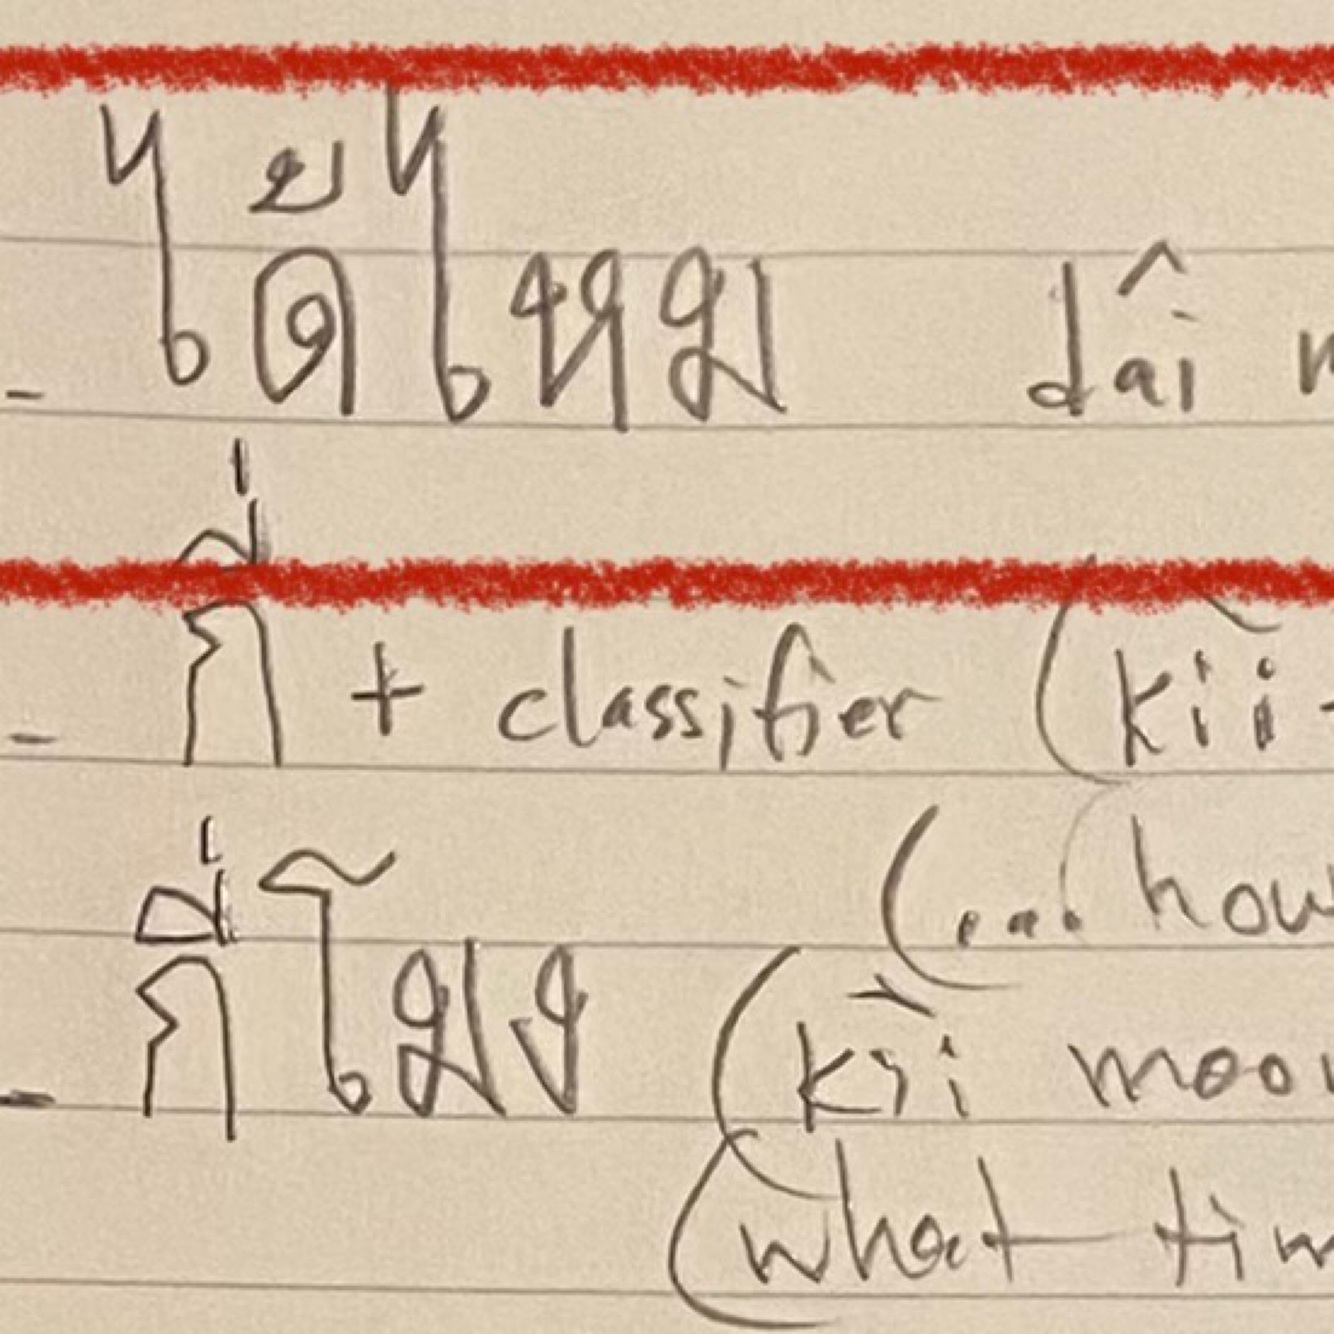 - ได้ไหม dâi
- กี่ + classifier (kìi -
(... how
- กี่โมง (kìi moo
(what tim